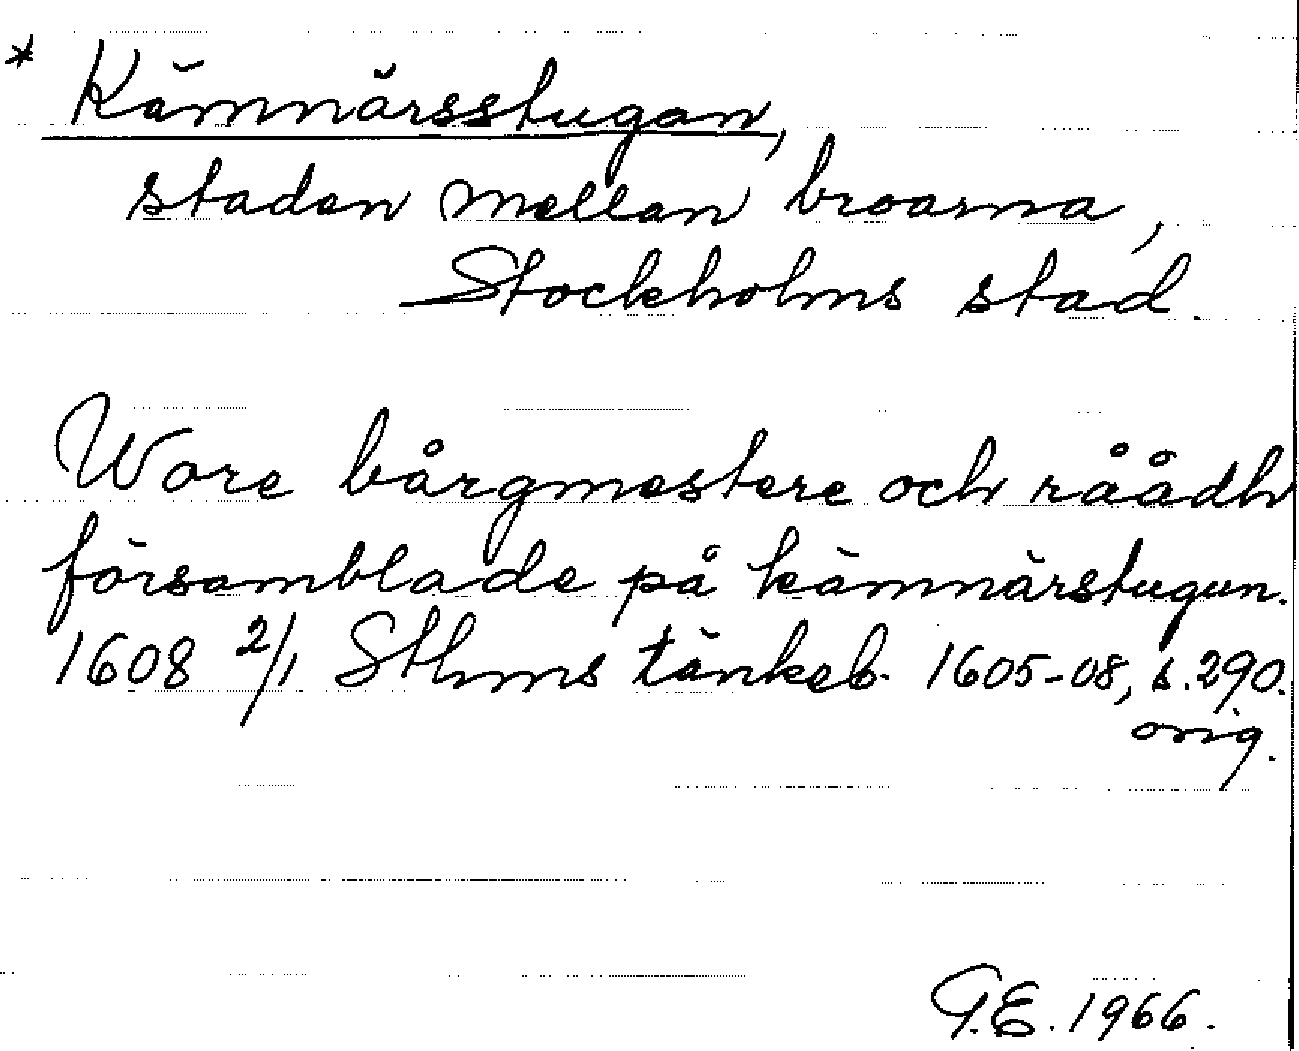 * Kämnärsstugan,
staden mellan broarna,
Stockholms stad.
Wore bårgmestere och råådh
församblade på kämnärstugun.
1608 2/1 Sthms tänkeb. 1605-08, s. 290.
orig.
G.E. 1966.